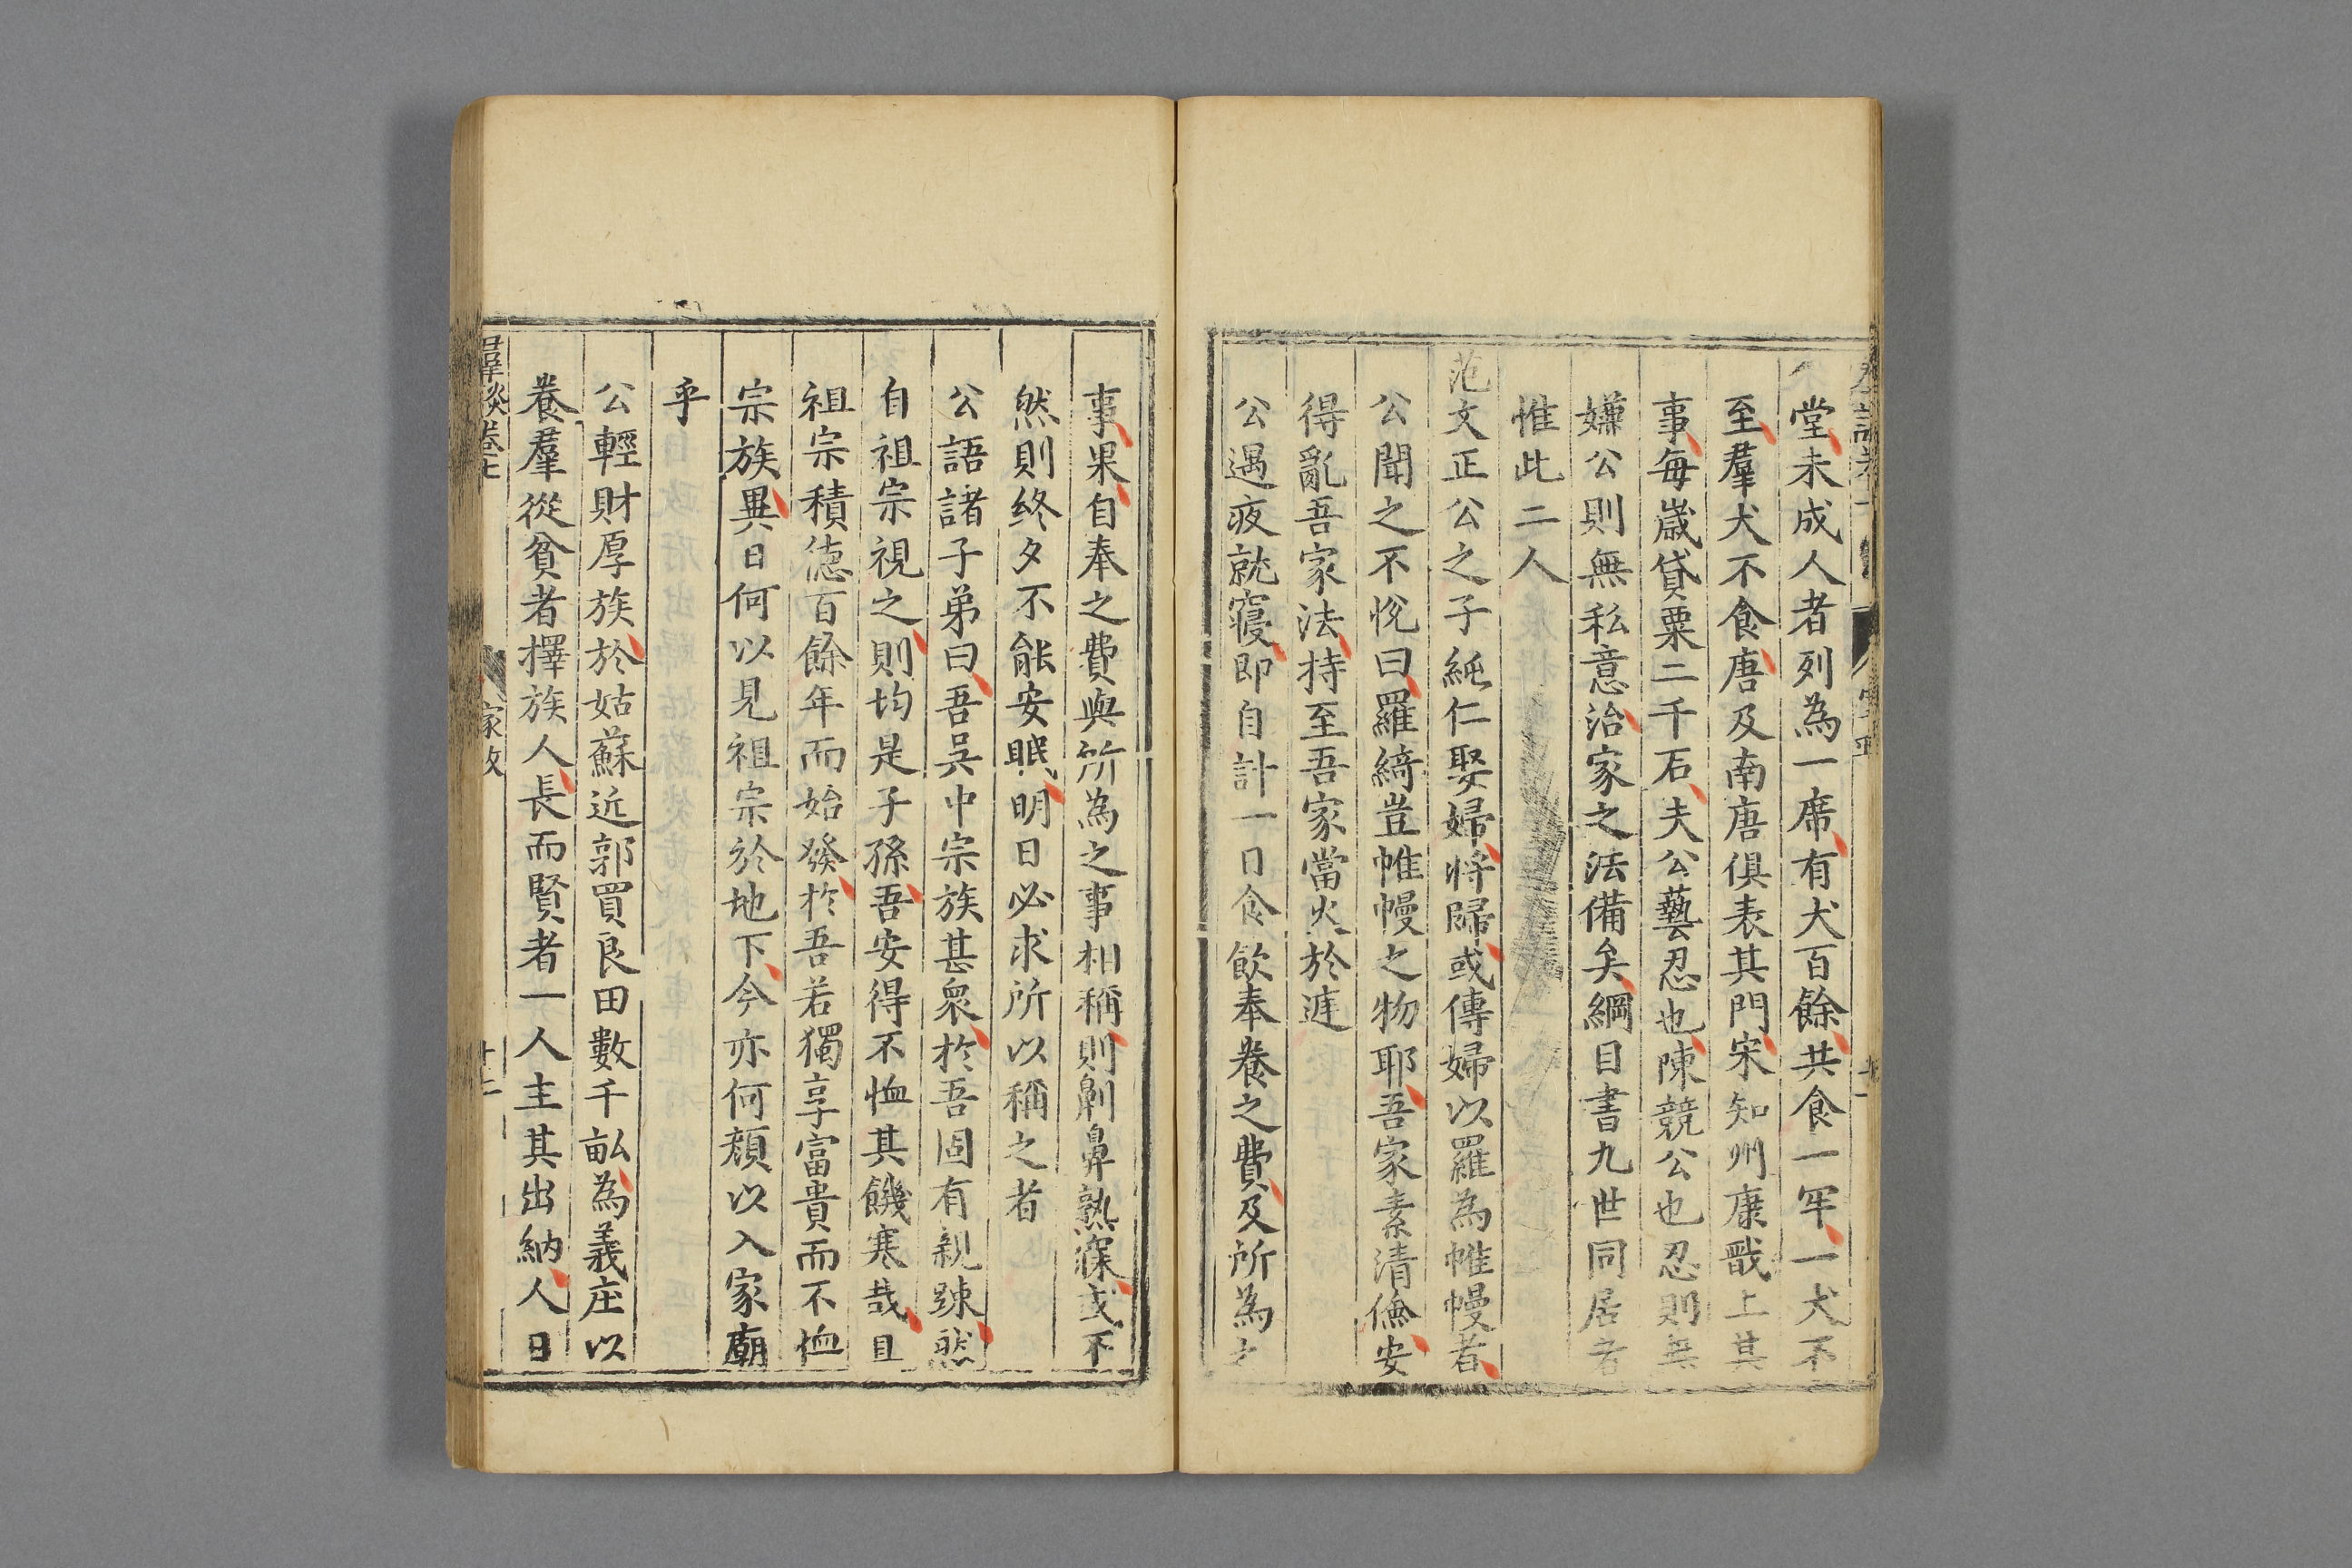 堂未成人者列為一席有犬百餘共食一牢一犬不
至羣犬不食唐及南唐俱表其門宋知州康戬上其
事每歲貸粟二千石夫公藝忍也陳競公也忍則無
嫌公則無私意治家之法備矣綱目書九世同居者
惟此二人
范文正公之子純仁娶婦將歸或傳婦以羅為帷幔者
公聞之不悅曰羅綺豈帷幔之物耶吾家素清儉安
得亂吾家法持至吾家當火於庭
公遇夜就寢即自計一日食飲奉養之費及所為之
事果自奉之費與所為之事相稱則鼾鼻熟寐或不
然則終夕不能安眠明日必求所以稱之者
公語諸子弟曰吾吳中宗族甚衆於吾固有親踈然
自祖宗視之則均是子孫吾安得不恤其饑寒哉且
祖宗積德百餘年而始發於吾若獨享富貴而不恤
宗族異日何以見祖宗於地下今亦何顏以入家廟
乎
公輕財厚族於姑蘇近郭買良田數千畝為義庄以
養羣從貧者擇族人長而賢者一人主其出納人日
羣談卷七 家教 十二